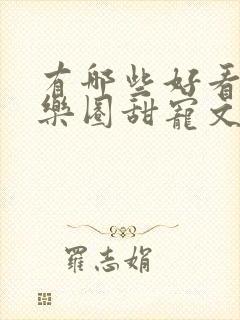 有哪些好看
樂園甜寵文
羅志娟